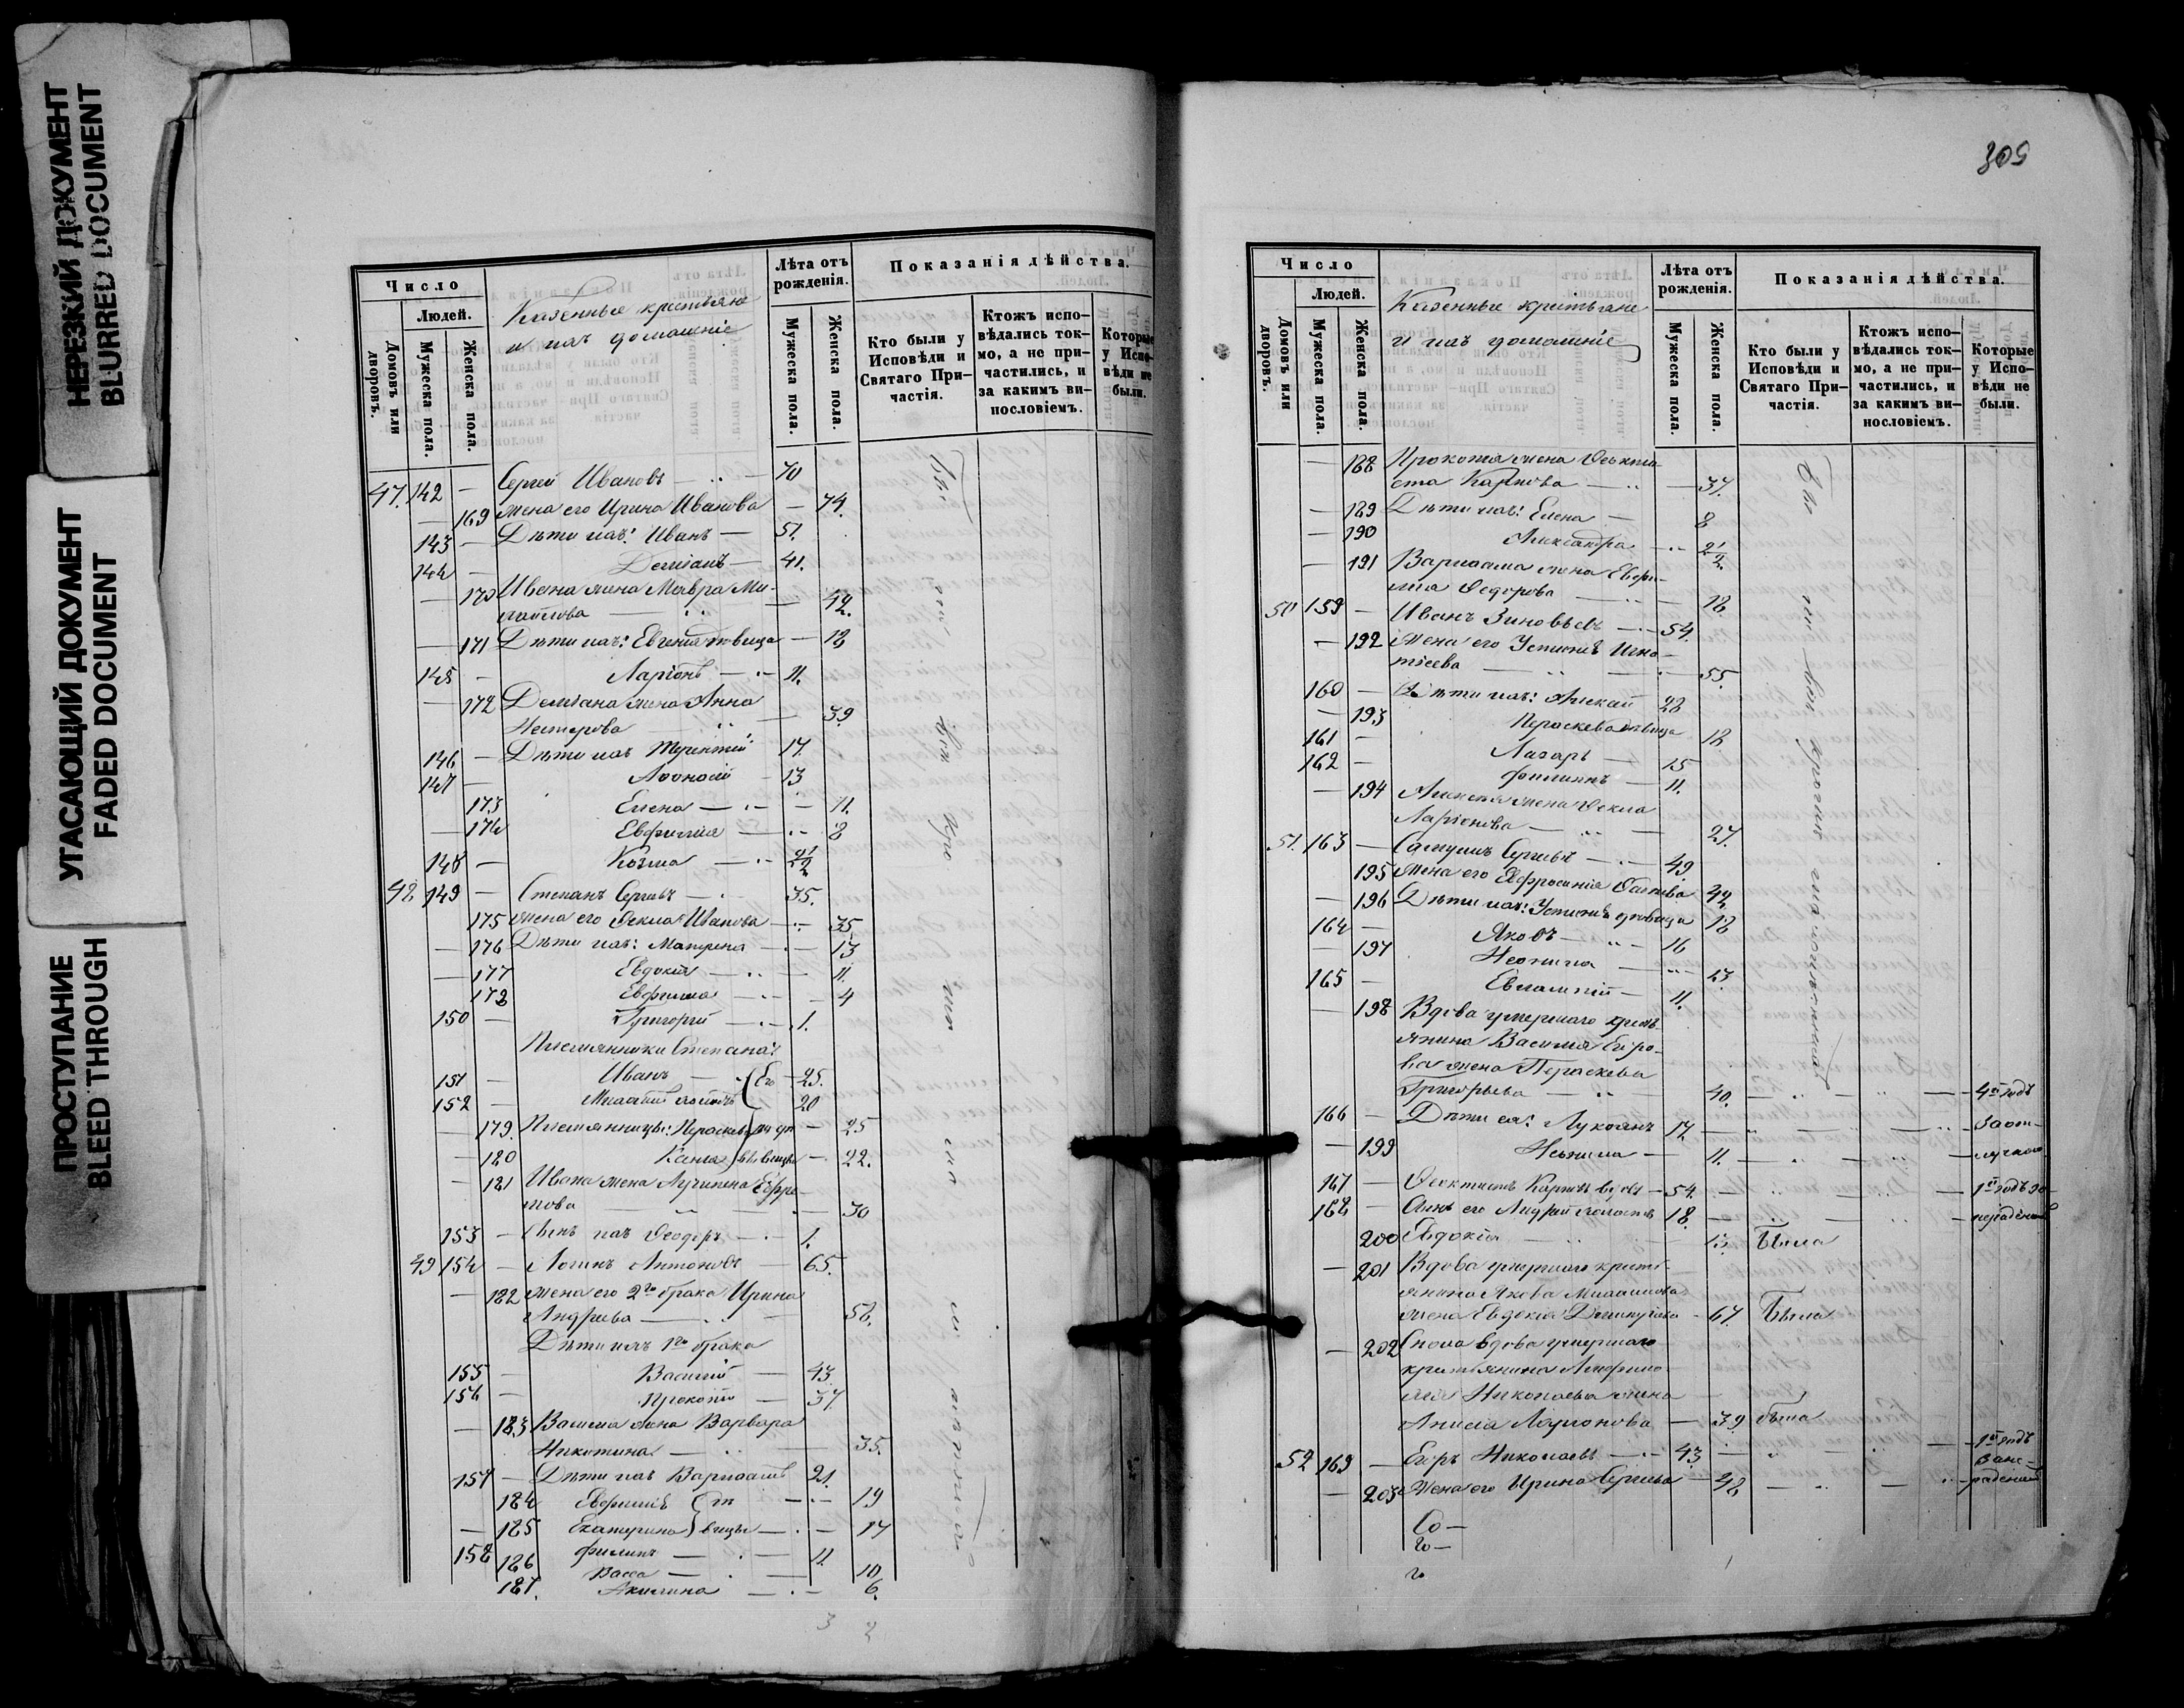 НЕРЕЗКИЙ ДОКУМЕНТ
BLURRED DOCUMENT
УГАСАЮЩИЙ ДОКУМЕНТ
FADED DOCUMENT
ПРОСТУПАНИЕ
BLEED THROUGH
Число
Людей.
Домовъ или дворовъ.
Мужеска пола.
Женска пола.
Казенные крестьяне
и ихъ домашніе
Лѣта отъ рожденія.
Мужеска пола.
Женска пола.
Показанія дѣйства.
Кто были у Исповѣди и Святаго При-частія.
Ктожъ испо-вѣдались ток-мо, а не при-частились, и за какимъ ви-нословіемъ.
Которые у Испо-вѣди не были.
47. 142 — Сергей Ивановъ — 70
— 169 жена его Ирина Иванова — 74.
143 — Дѣти ихъ: Иванъ — 51.
144 — Деміанъ — 41.
— 170 Ивана жена Мавра Ми-
хайлова — 49.
— 171 Дѣти ихъ: Евгенія дѣвица — 18
145 — Ларіонъ — 11.
— 172 Деміана жена Анна
Нестерова — 39.
146 — Дѣти ихъ Терентій 17.
147 — Афонасій — 13
173 Елена — 11.
— 174 Евфимія — 8
148 — Козма — 2 1/2
48 149 — Степанъ Сергѣевъ — 35.
175 жена его Фекла Иванова — 35
— 176 Дѣти ихъ: Матрена — 13
— 177 Евдокія — 11.
178 Евфимія — 4
150 — Григорій — 1.
Племянники Степана:
151 — Иванъ — 25.
152 — 20
— 179. Племянницы: Параскева — 25
— 180 — 22.
— 181 Ивана жена Агрипена Ефре-
мова — 30
153 — Сынъ ихъ Феодоръ — 1.
49 154 — Логинъ Антоновъ — 65.
— 182 жена его 2го брака Ирина
Андреева — 58.
Дѣти ихъ 1го брака
155 — Василій — 43
156 — Прокопій — 37
— 183 Василія жена Варвара
Никитина — 35.
157 — Дѣти ихъ Варлаамъ 21.
184 Евфимія — 19
— 185 Екатерина — 17
158 Филипъ — 11.
186 Васса — 10
187. Акилина — 6.
3 2
305
Число
Людей.
Домовъ или дворовъ.
Мужеска пола.
Женска пола.
Казенные крестьяне
и ихъ домашніе
Лѣта отъ рожденія.
Мужеска пола.
Женска пола.
Показанія дѣйства.
Кто были у Исповѣди и Святаго При-частія.
Ктожъ испо-вѣдались ток-мо, а не при-частились, и за какимъ ви-нословіемъ.
Которые у Испо-вѣди не были.
— 188 Прокопія жена Феокти-
ста Карпова — 37.
— 189 Дѣти ихъ: Елена — 8
— 190 Александра — 2 1/2
— 191 Варлаама жена Евфи-
мія Федорова — 18
50 159 — Иванъ Зиновьевъ — 54.
— 192 жена его Устинія Игна-
тіева — 55.
160 — Дѣти ихъ: Алексей 28
— 193 Параскева дѣвица 18
161 — Лазарь — 15
162 — Филиппъ — 11.
— 194 Алексея жена Фекла
Ларіонова — 27.
51. 163 — Самуилъ Сергѣевъ — 49
195 жена его Евфросинія 42
— 196 Дѣти ихъ: Устинія дѣвица 18
164 — Яковъ — 16
— 197 Неонила — 13.
165 — Евлампій — 11.
— 198 Вдова умершаго кресть-
янина Василія Егоро-
ва жена Параскева
Григорьева — 40. — 4й годъ
166 — Дѣти ея: Лукіанъ 17 — за от-
— 199 Неонила — 11. — лучкою
167 — Феоктистъ Карповъ вдовъ — 54. — 1й годъ по
168 — Сынъ его Андрей холостъ 18. — нераденію
200 Евдокія — 13. Была
— 201 Вдова умершаго кресть-
янина Якова
жена Евдокія — 67. Была
— 202 Снова вдова умершаго
крестьянина
Николаева жена
Анисія Ларионова — 39 была
52 169 — Егоръ Николаевъ — 43 — 1й годъ
— 203 жена его Ирина Сергѣева — 48